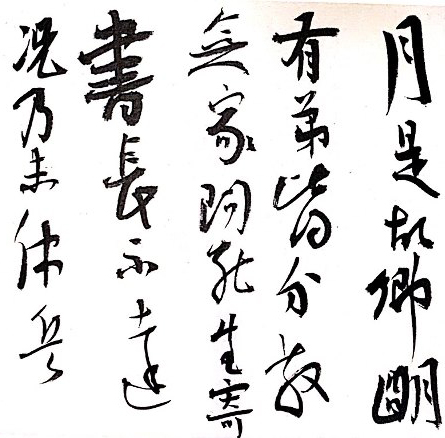 月是故鄉明
有弟皆分散
無家問死生寄
書長不達
況乃未休兵